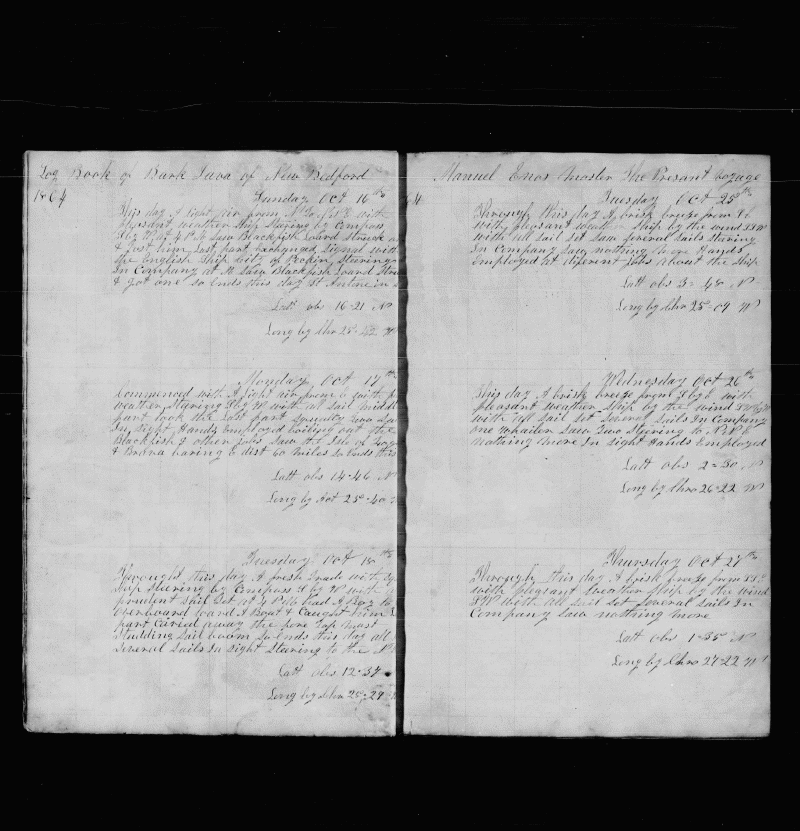 Log Book of Bark Java of New Bedford
1864
Sunday Oct 16th
This day A light air from N to with
pleasant weather Ship Staring by Compass
at 4 P M Saw Blackfish Loard Struck
& lost him last part Signal with
the English Ship City of Peckin Staring
In Company at M Saw Blackfish Loard
& got one So Ends this day St in
Latt obs 16-21 N
Long by Chro 25-42 W
Monday Oct 17th
Commenced with A light air from with
weather Staring S by W with all Sail middle
part took the last part Squally
In Sight Hands Employed boiling out the
Blackfish & other jobs Saw the Isle of
& Brava baring dist 60 miles So Ends this
Latt obs 14-46 N
Long by Act 25-40
Tuesday Oct 18th
Throught this day A fresh trade with
Ship Staring by Compass S by W with
prudent Sail Set at had A Boy
Overboard loard A Boat & Caught him
part Caried away the fore Top mast
Studding Sail boom So Ends this day all
Several Sails In Sight Staring to the
Latt obs 12-37
Long by Chro 25-27
Manuel Enos Master The Presant Voyage
64
Tuesday Oct 25th
Through this day A brisk breze from
with pleasant weather Ship by the wind
with All Sail Set Saw Several Sails Staring
In Company Saw nothing more Hands
Employed at diferent jobs About the Ship
Latt obs 3-48 N
Long by Chro 25-09 W
Wednesday Oct 26th
This day A brisk breze from with
pleasant weather Ship by the wind
with All Sail Set Several Sails In Company
one whailer Saw two Staring to
nothing more In Sight Hands Employed
Latt obs 2-30 N
Long by Chro 26-22 W
Thursday Oct 27th
Through this day A brisk breze from
with pleasant weather Ship by the wind
with All Sail Set Several Sails In
Company Saw nothing more
Latt obs 1-35 N
Long by Chro 27-22 W